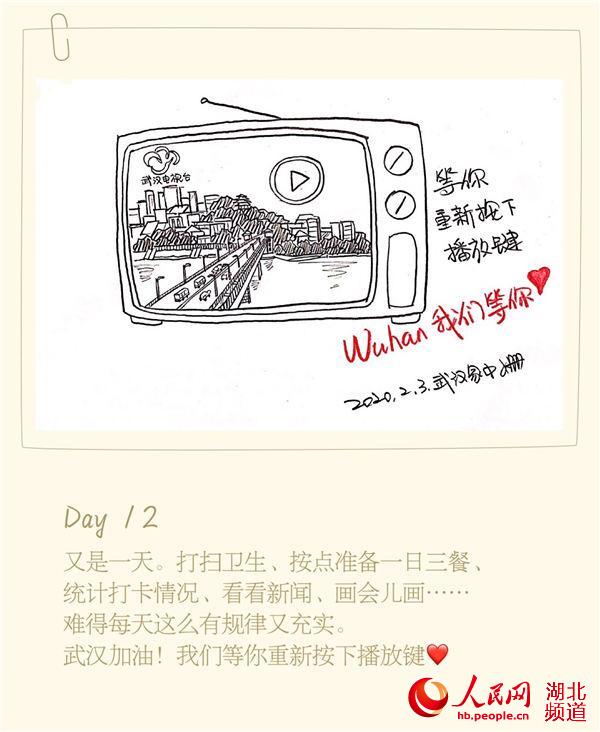 武汉电视台
等你
重新按下
播放键
Wuhan 我们等你
2020.2.3.武汉家中
Day 12
又是一天。打扫卫生、按点准备一日三餐、
统计打卡情况、看看新闻、画会儿画……
难得每天这么有规律又充实。
武汉加油！我们等你重新按下播放键❤️
人民网 湖北
hb.people.cn 频道